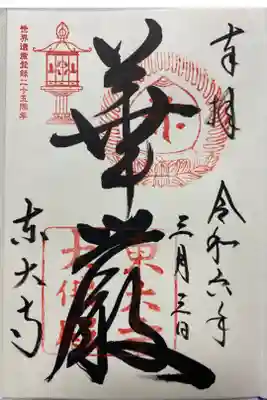 奉拝
令和六年
三月三日
華厳
東大寺
世界遺産登録二十五周年
東大寺
大仏殿